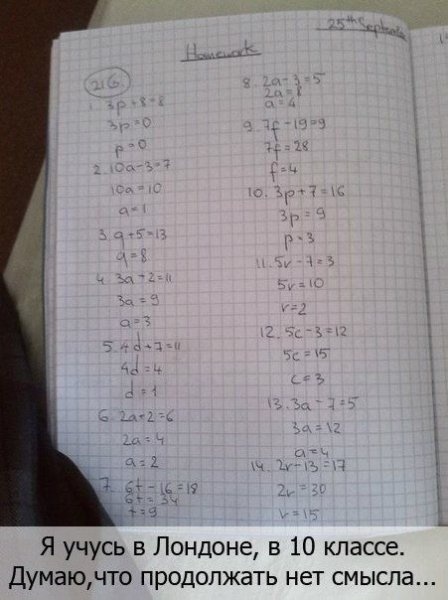 25th Septemb
Homework
216.
1. 3p+8=8
3p=0
p=0
2. 10a-3=7
10a=10
a=1
3. q+5=13
q=8
4. 3a+2=11
3a=9
a=3
5. 4d+7=11
4d=4
d=1
6. 2a+2=6
2a=4
a=2
7. 6t-16=18
6t=34
t=9
8. 2a-3=5
2a=8
a=4
9. 7f-19=9
7f=28
f=4
10. 3p+7=16
3p=9
p=3
11. 5r-7=3
5r=10
r=2
12. 5c-3=12
5c=15
c=3
13. 3a-7=5
3a=12
a=4
14. 2r-13=17
2r=30
r=15
Я учусь в Лондоне, в 10 классе.
Думаю,что продолжать нет смысла...